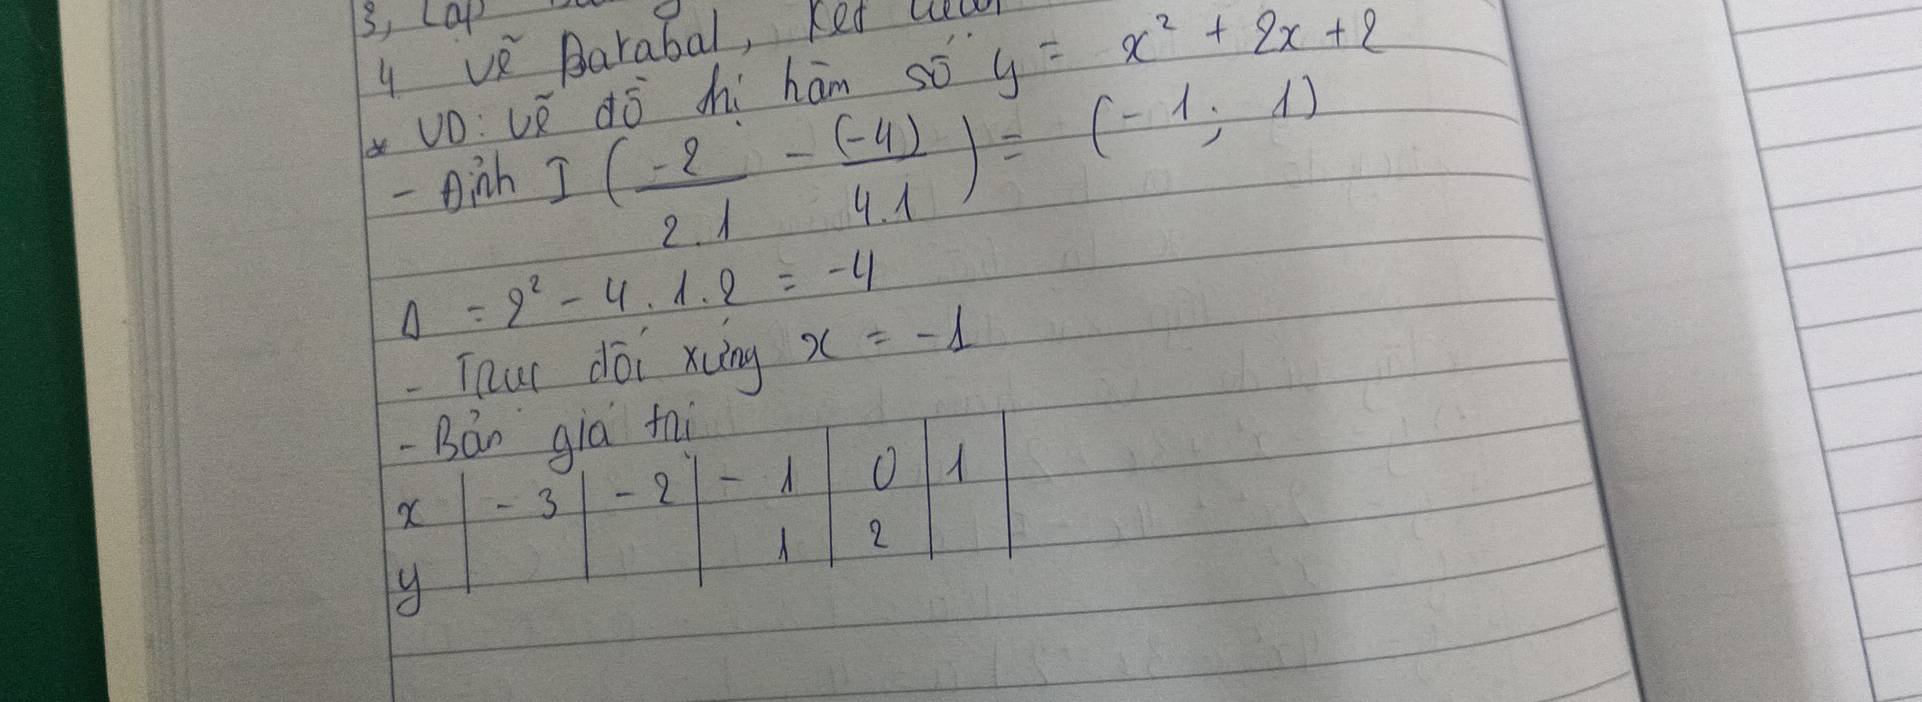 3, Lập
4 vẽ Parabal, kết luận
* VD: vẽ đồ thị hàm số y = x² + 2x + 2
- Đỉnh I (-2/2.1 - (-4)/4.1) = (-1; 1)
Δ = 2² - 4.1.2 = -4
- Trục đối xứng x = -1
- Bản giá trị
x | -3 | -2 | -1 | 0 | 1 |
y | | | 1 | 2 | |